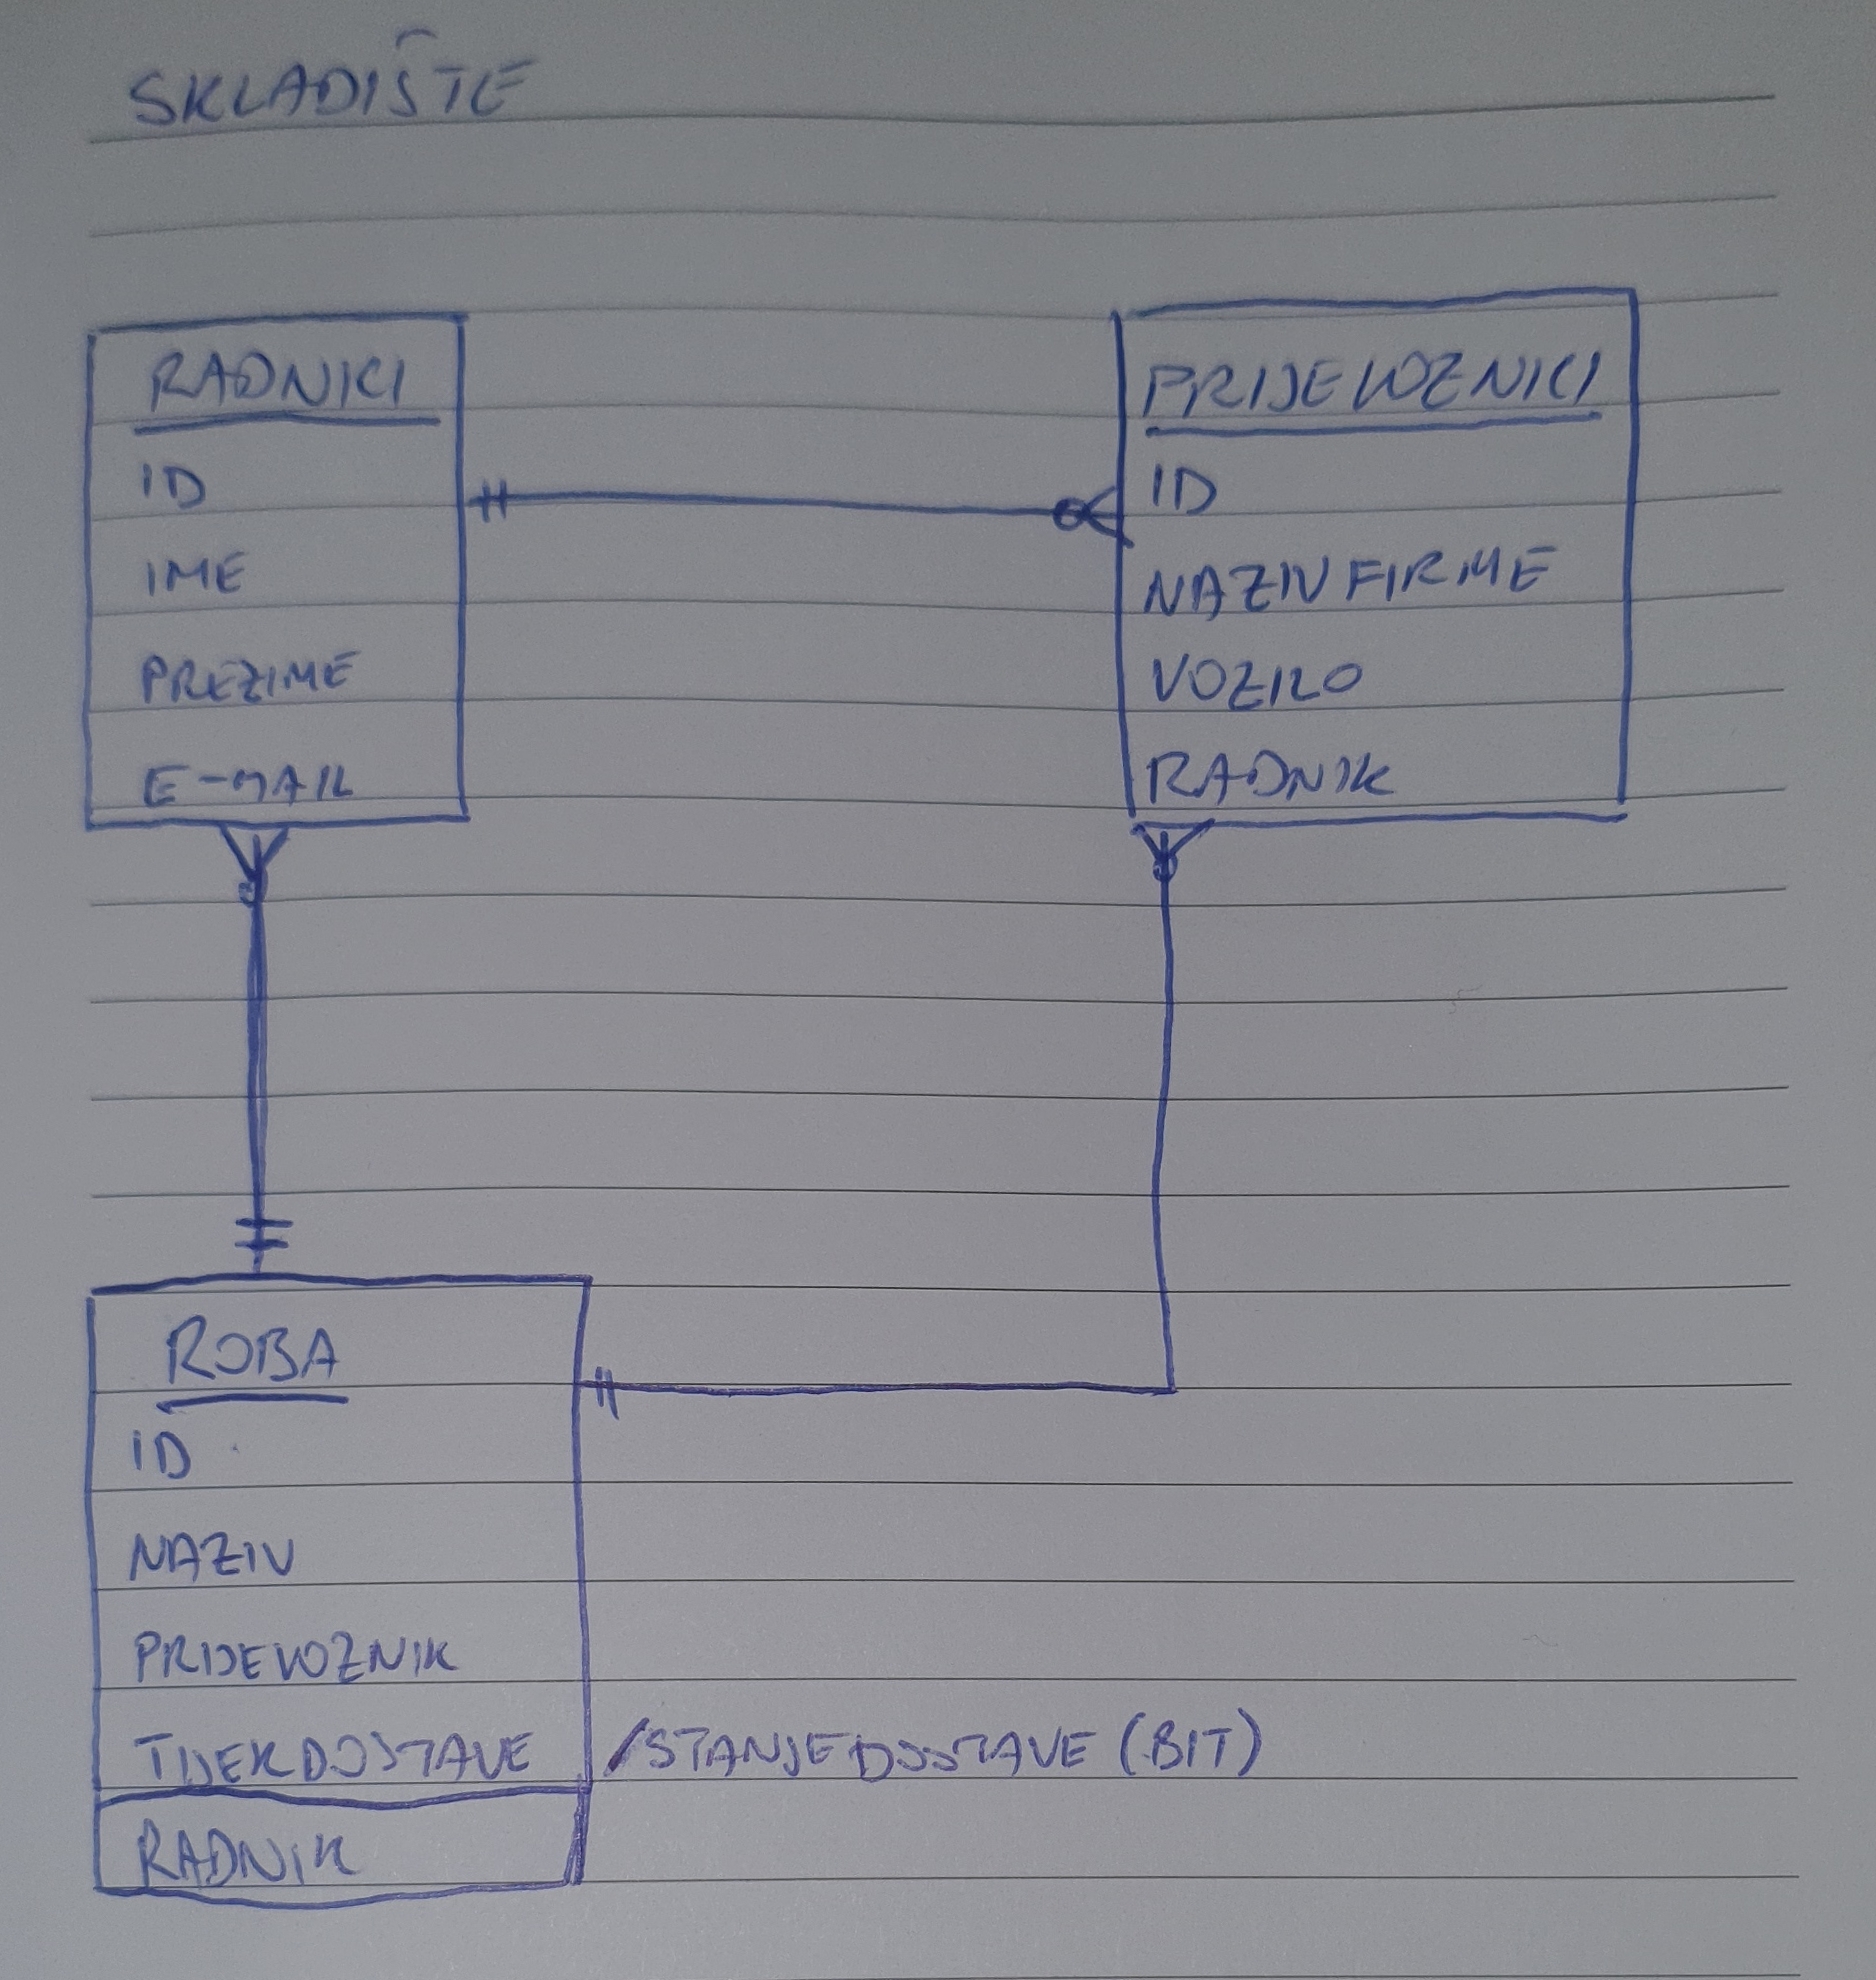 SKLADIŠTE
RADNICI
ID
IME
PREZIME
E-MAIL
PRIJEVOZNICI
ID
NAZIV FIRME
VOZILO
RADNIK
ROBA
ID
NAZIV
PRIJEVOZNIK
TIJEK DOSTAVE /STANJE DOSTAVE (BIT)
RADNIK